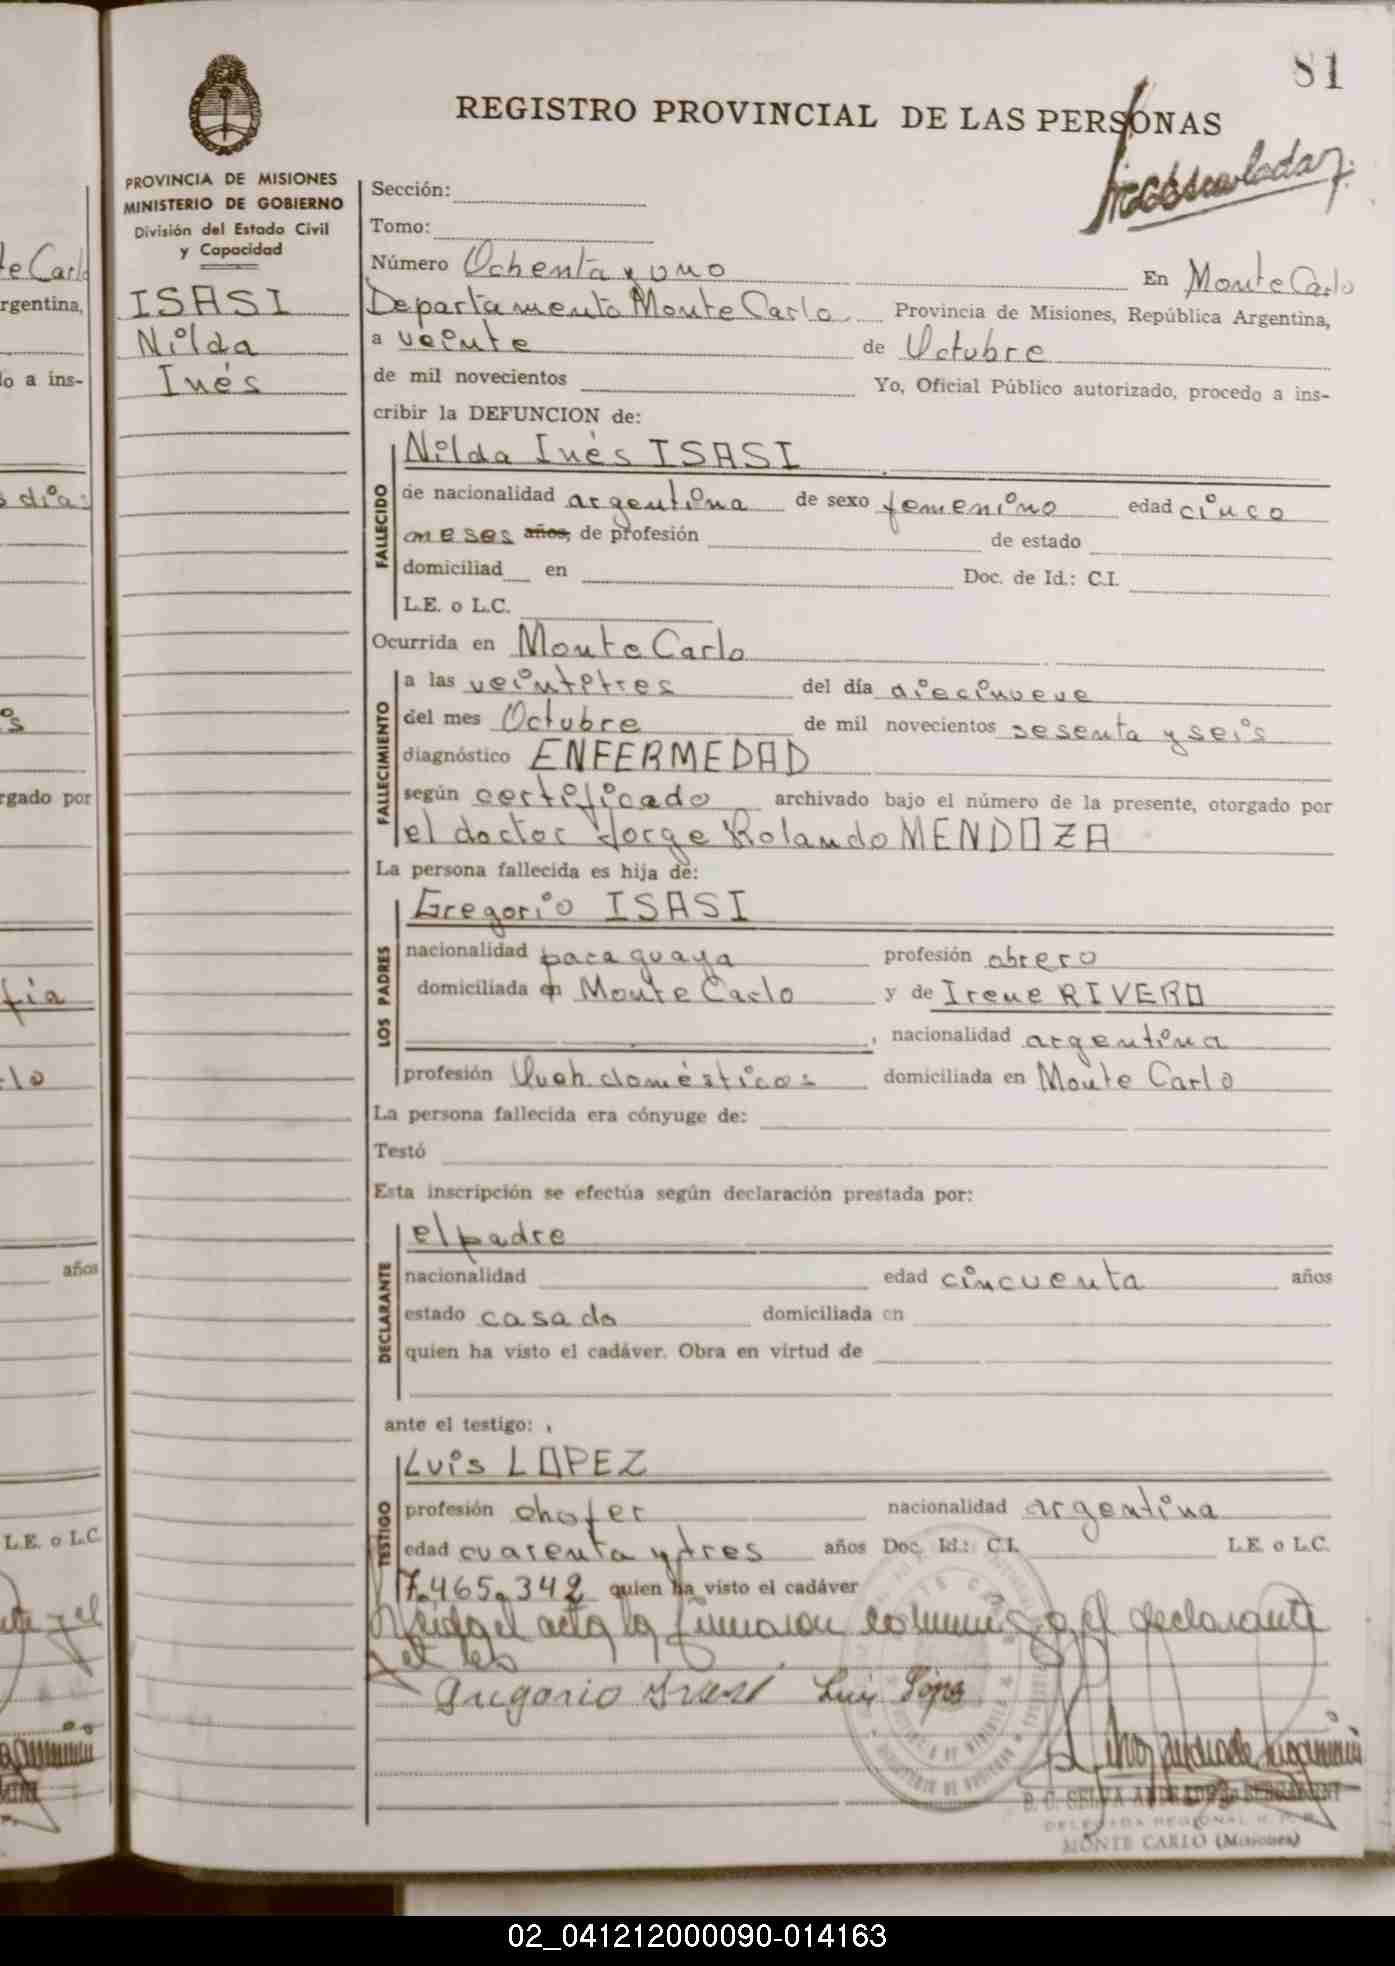 81
REGISTRO PROVINCIAL DE LAS PERSONAS
PROVINCIA DE MISIONES
MINISTERIO DE GOBIERNO
División del Estado Civil
y Capacidad
ISASI
Nilda
Inés
Sección:
Tomo:
Número Ochenta y uno En Monte Carlo
Departamento Monte Carlo Provincia de Misiones, República Argentina,
a veinte de Octubre
de mil novecientos Yo, Oficial Público autorizado, procedo a ins-
cribir la DEFUNCION de:
FALLECIDO
Nilda Inés ISASI
de nacionalidad argentina de sexo femenino edad cinco
meses años, de profesión de estado
domiciliad en Doc. de Id.: C.I.
L.E. o L.C.
Ocurrida en Monte Carlo
FALLECIMIENTO
a las veintitres del día diecinueve
del mes Octubre de mil novecientos sesenta y seis
diagnóstico ENFERMEDAD
según certificado archivado bajo el número de la presente, otorgado por
el doctor Jorge Rolando MENDOZA
La persona fallecida es hija de:
LOS PADRES
Gregorio ISASI
nacionalidad paraguaya profesión obrero
domiciliada en Monte Carlo y de Irene RIVERO
, nacionalidad argentina
profesión Queh. domésticos domiciliada en Monte Carlo
La persona fallecida era cónyuge de:
Testó
Esta inscripción se efectúa según declaración prestada por:
DECLARANTE
el padre
nacionalidad edad cincuenta años
estado casado domiciliada en
quien ha visto el cadáver. Obra en virtud de
ante el testigo:
TESTIGO
Luis LOPEZ
profesión chofer nacionalidad argentina
edad cuarenta y tres años Doc. Id.: C.I. L.E. o L.C.
7.465.342 quien ha visto el cadáver
Leída el acta la firmaron conmigo el declarante
y el
Gregorio Isasi Luis López
MONTE CARLO (Misiones)
te Carlo
rgentina,
o a ins-
s días
rgado por
años
L.E. o L.C.
02_041212000090-014163